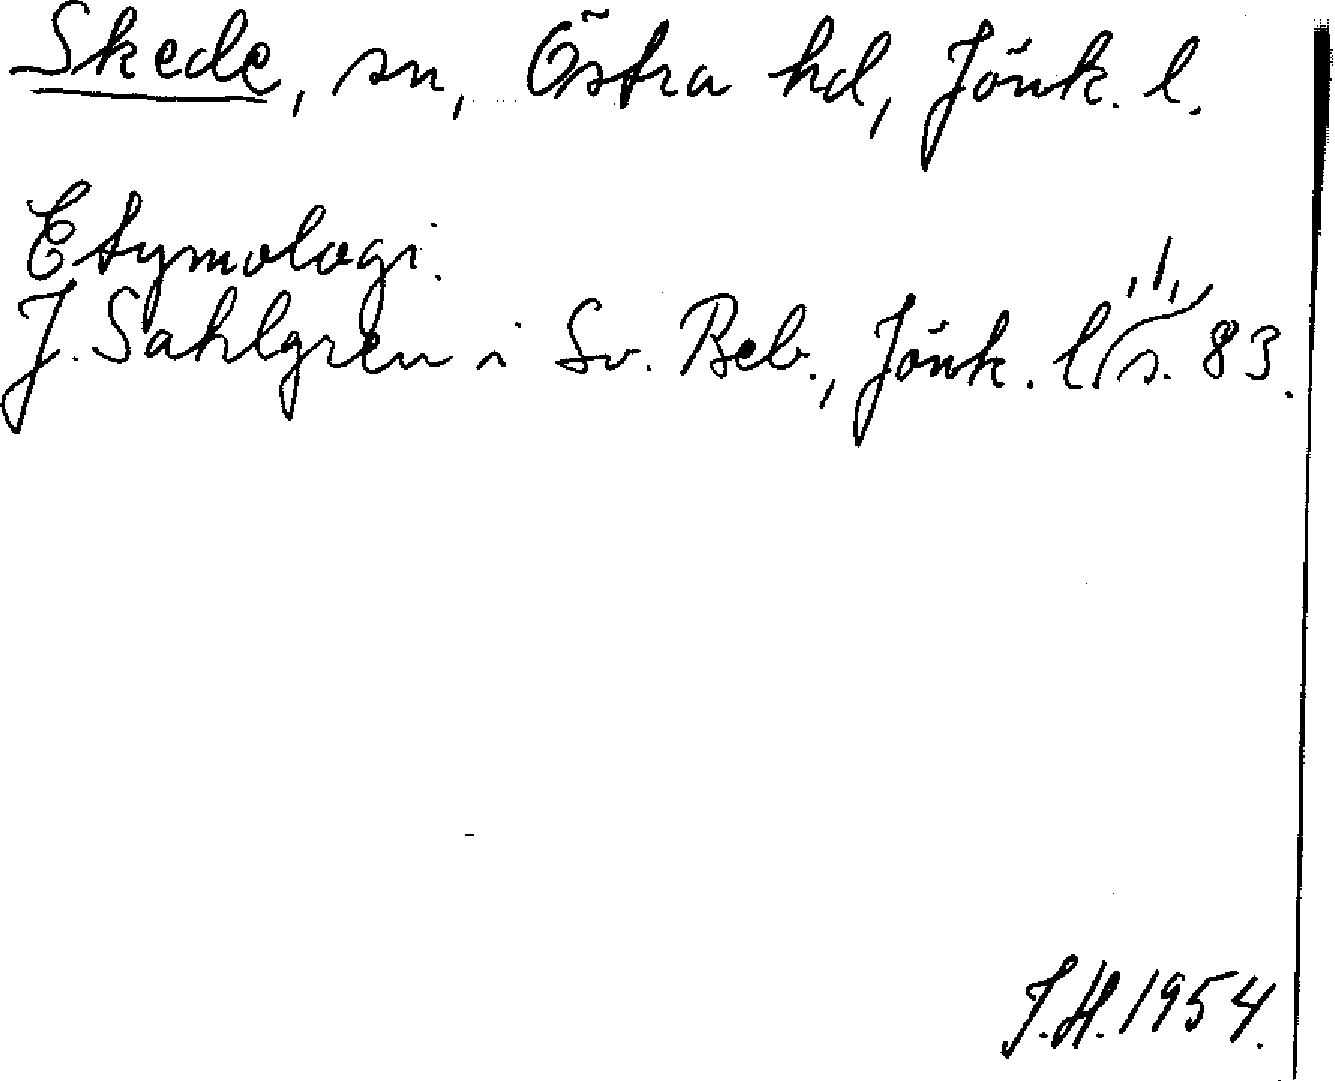 Skede, sn, Östra hd, Jönk. l.
Etymologi.
J. Sahlgren i Sv. Beb., Jönk. l, 1, s. 83.
J.H. 1954.